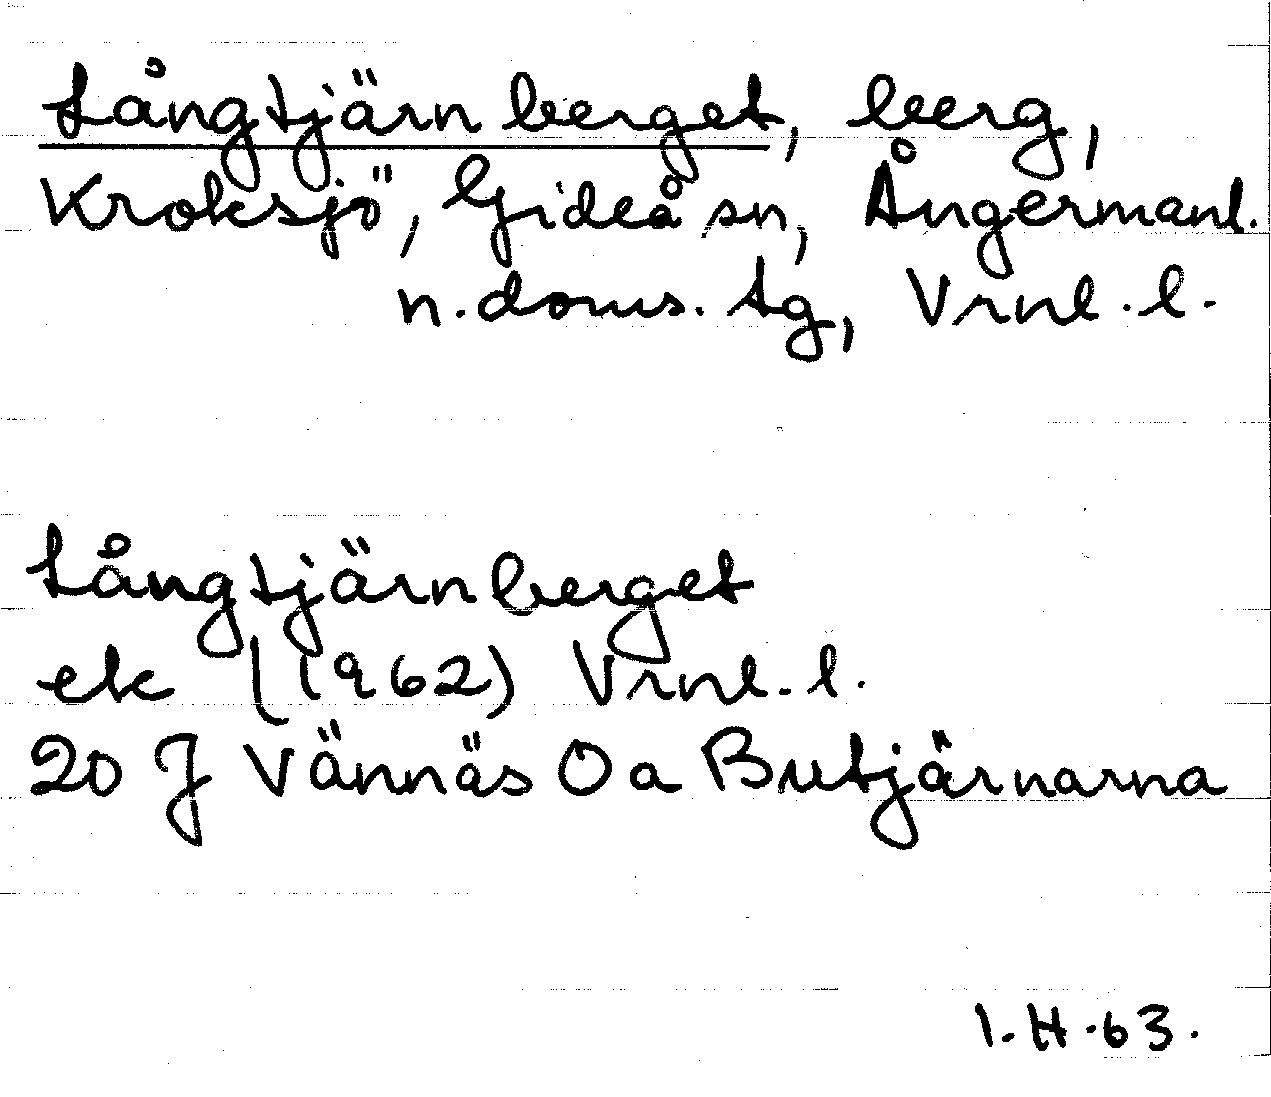 Långtjärnberget, berg,
Kroksjö, Gideå sn, Ångermanl.
n. doms. tg, Vrnl. l.
Långtjärnberget
ek (1962) Vrnl. l.
20 J Vännäs 0 a Butjärnarna
I. H. 63.